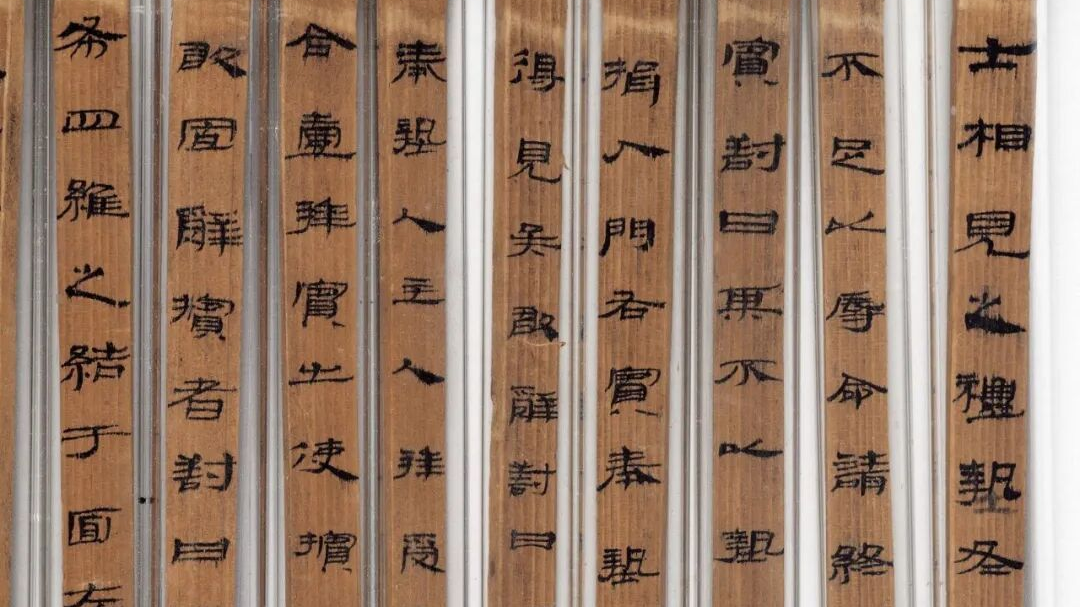 士相見之禮摯冬
不足以辱命請終
賓對曰某不以摯
揖入門右賓奉摯
得見矣敢辭對曰
奉摯入主人拜受
合壹拜賓出使擯
敢固辭擯者對曰
布四維之結于面左